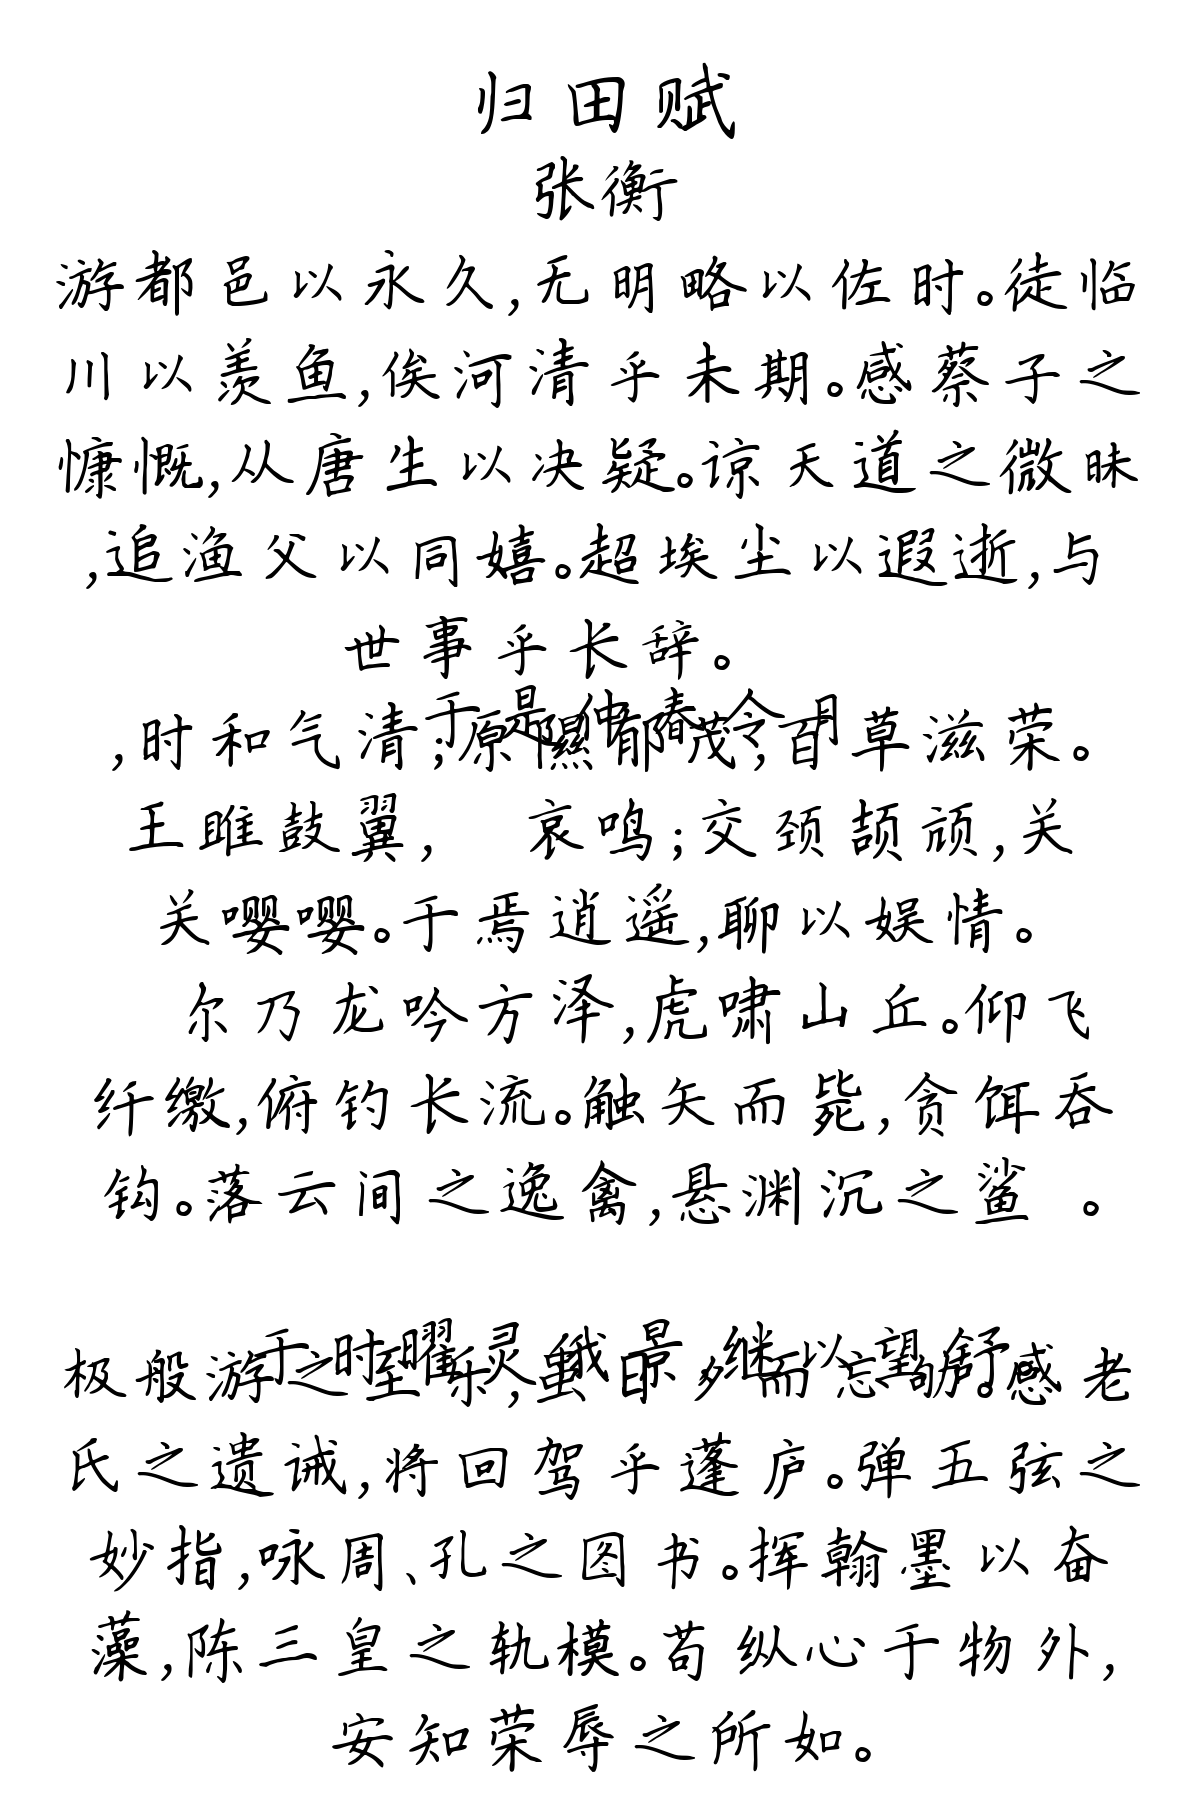 归田赋
张衡
游都邑以永久,无明略以佐时。徒临
川以羡鱼,俟河清乎未期。感蔡子之
慷慨,从唐生以决疑。谅天道之微昧
,追渔父以同嬉。超埃尘以遐逝,与
世事乎长辞。
于是仲春令月
,时和气清;原隰郁茂,百草滋荣。
王雎鼓翼, 哀鸣;交颈颉颃,关
关嘤嘤。于焉逍遥,聊以娱情。
尔乃龙吟方泽,虎啸山丘。仰飞
纤缴,俯钓长流。触矢而毙,贪饵吞
钩。落云间之逸禽,悬渊沉之鲨 。
于时曜灵俄景,继以望舒。
极般游之至乐,虽日夕而忘劬。感老
氏之遗诫,将回驾乎蓬庐。弹五弦之
妙指,咏周、孔之图书。挥翰墨以奋
藻,陈三皇之轨模。苟纵心于物外,
安知荣辱之所如。